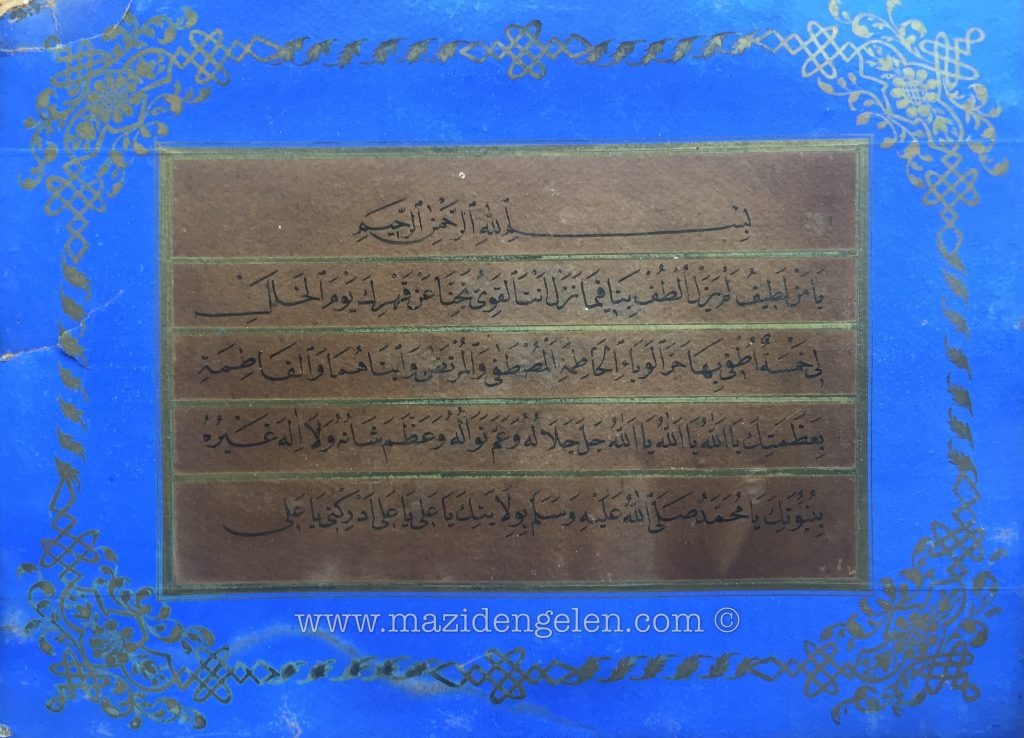 بِسْمِ ٱللهِ ٱلرَّحْمٰنِ ٱلرَّحِيمِ
يَا مَنْ لَطِيفٌ لَمْ يَزَلْ اُلْطُفْ بِنَا فِيمَا نَزَلْ اَنْتَ ٱلْقَوِىُّ نَجِّنَا عَنْ قَهْرِكَ يَوْمَ ٱلْخَلَلْ
لِى خَمْسَةٌ اُطْفِى بِهَا حَرَّ ٱلْوَبَاءِ ٱلْحَاطِمَةِ ٱلْمُصْطَفٰى وَٱلْمُرْتَضٰى وَٱبْنَاهُمَا وَٱلْفَاطِمَةِ
بِعَظَمَتِكَ يَا اَللهُ يَا اَللهُ يَا اَللهُ جَلَّ جَلَالُهُ وَعَمَّ نَوَالُهُ وَعَظُمَ شَانُهُ وَلَا اِلٰهَ غَيْرُهُ
بِنُبُوَّتِكَ يَا مُحَمَّدُ صَلَّى ٱللهُ عَلَيْهِ وَسَلَّمَ بِوِلَايَتِكَ يَا عَلِى يَا عَلِى اَدْرِكْنِى يَا عَلِى
www.mazidengelen.com ©